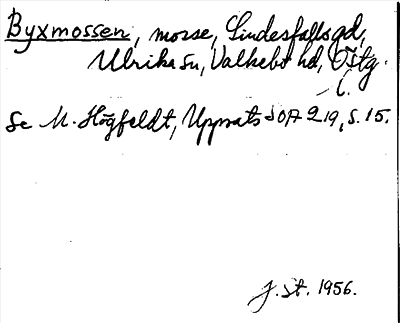 Byxmossen, mosse, Lindesfallsgd,
Ulrika sn, Valkebo hd, Östg.
l.
Se M. Högfeldt, Uppsats i OA 219, s. 15.
J. St. 1956.